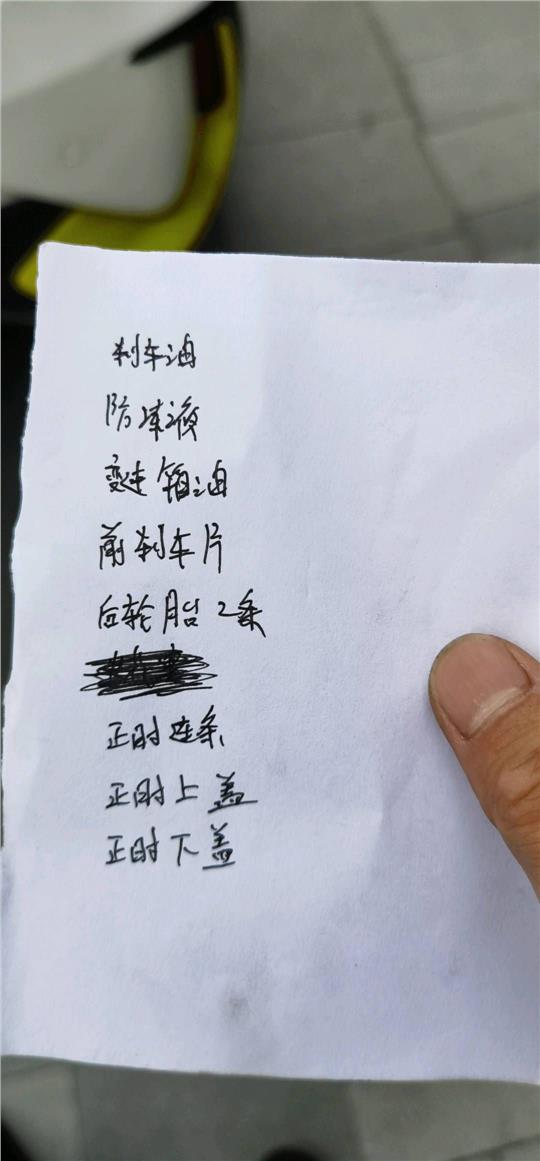 刹车油
防冻液
变速箱油
前刹车片
后轮胎2条
正时连条
正时上盖
正时下盖